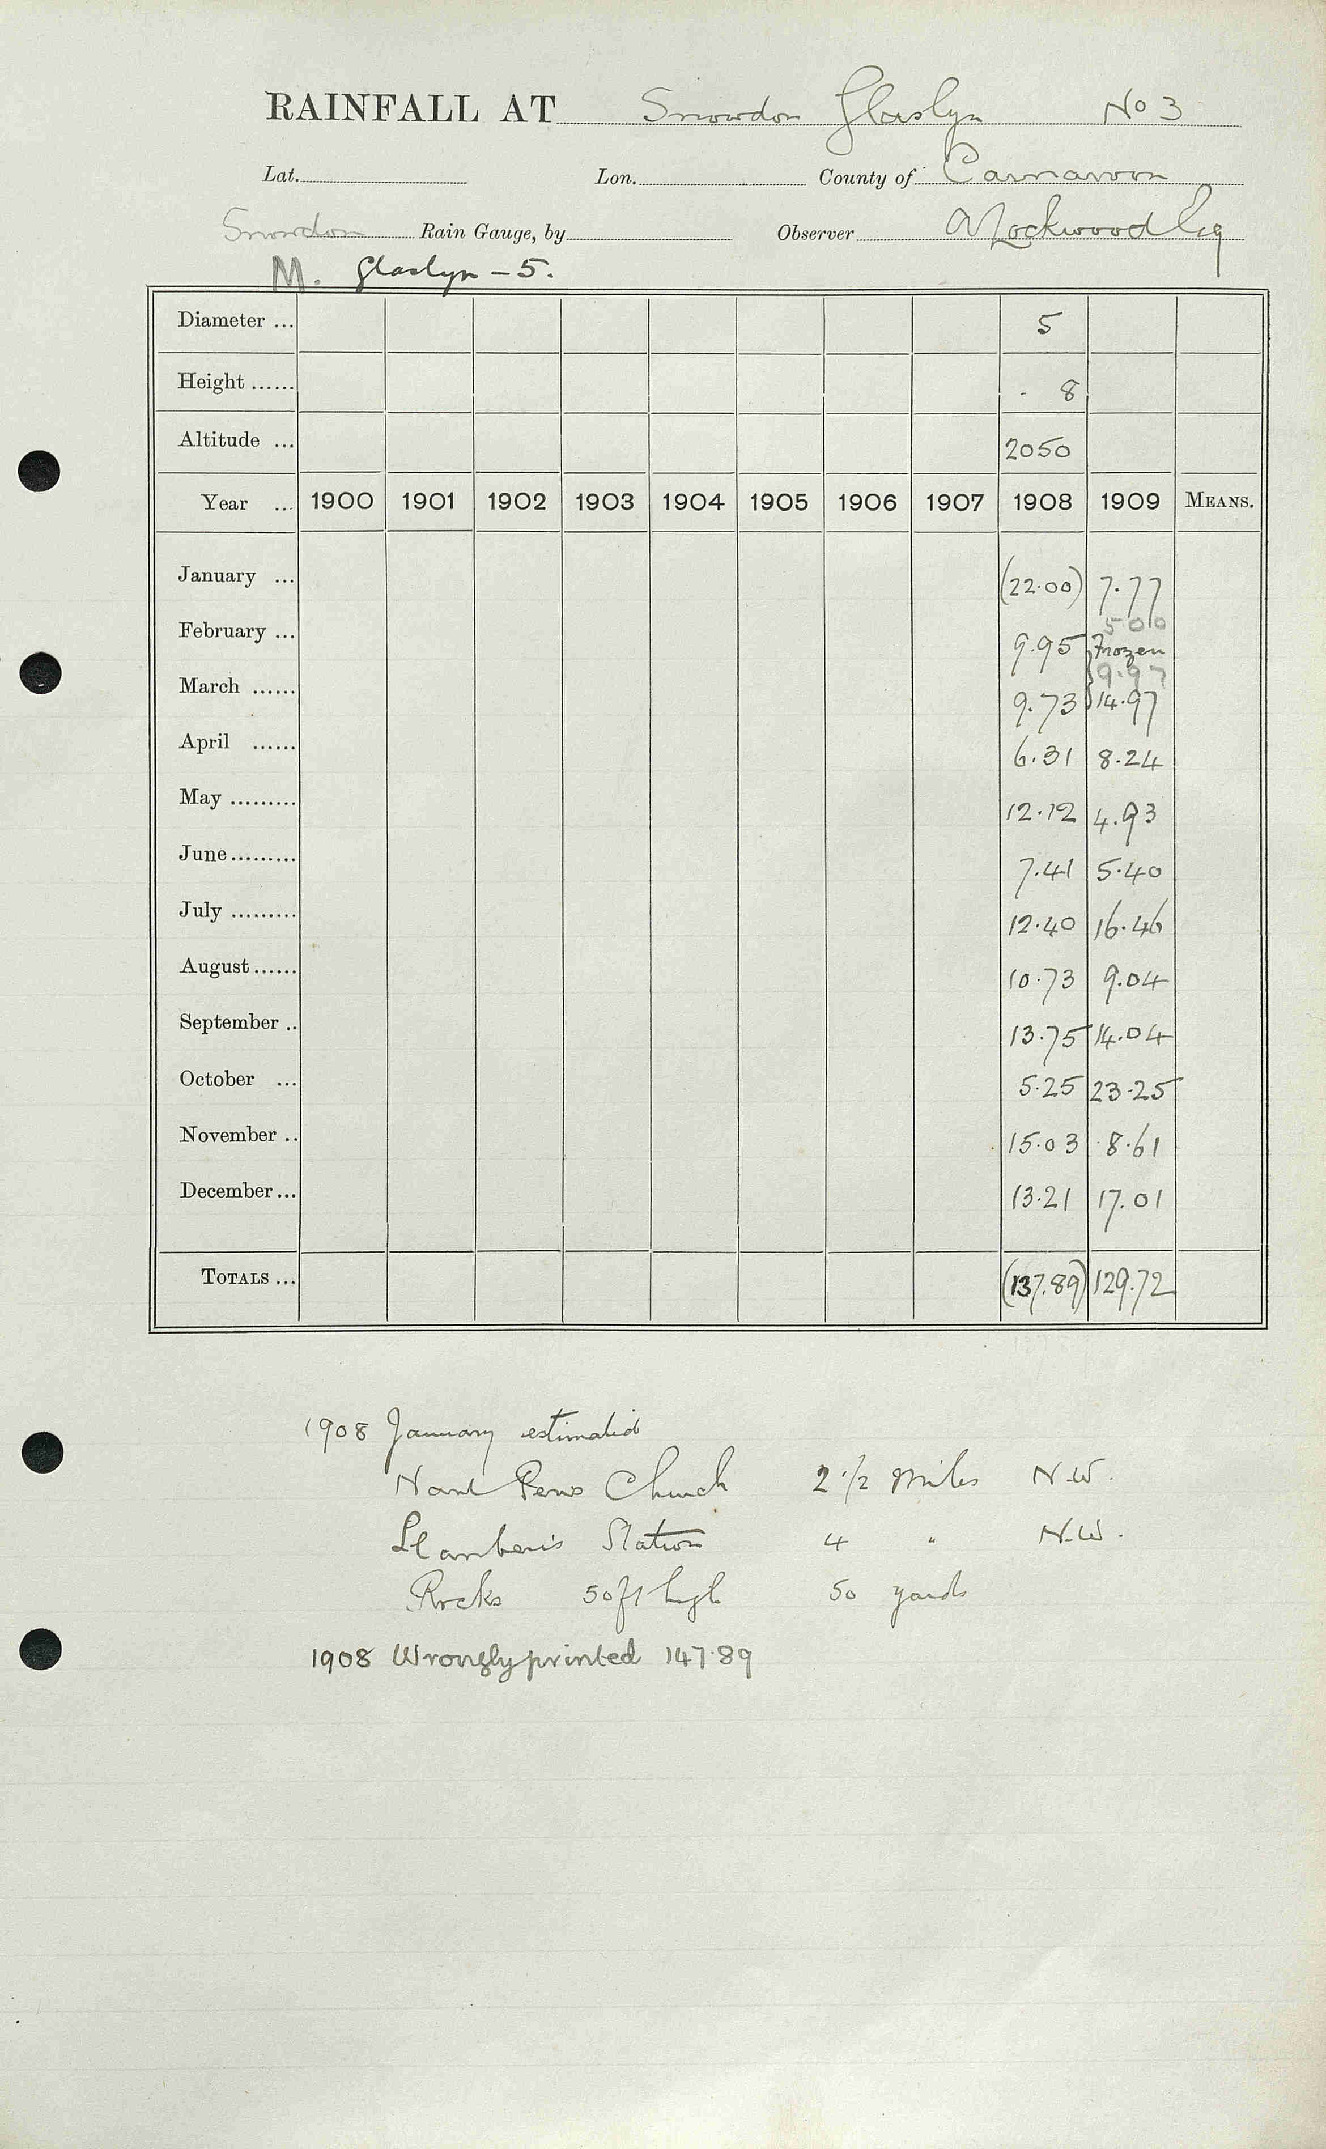 RAINFALL AT Snowdon Glaslyn No 3
Lat. Lon. County of Carnarvon
Snowdon Rain Gauge, by Observer A Lockwood Esq
M. Glaslyn – 5.
Diameter ... 5
Height ...... - 8
Altitude ... 2050
Year ... 1900 1901 1902 1903 1904 1905 1906 1907 1908 1909 MEANS.
January ... (22.00) 7.77
5 00
February ... 9.95 Frozen
9.97
March ...... 9.73 14.97
April ...... 6.31 8.24
May ......... 12.12 4.93
June ......... 7.41 5.40
July ......... 12.40 16.46
August ...... 10.73 9.04
September .. 13.75 14.04
October ... 5.25 23.25
November .. 15.03 8.61
December ... 13.21 17.01
TOTALS ... (137.89) 129.72
1908 January estimated
Nant Peris Church 2 1/2 Miles N.W.
Llanberis Station 4 " N.W.
Rocks 50 ft high 50 yards
1908 Wrongly printed 147.89